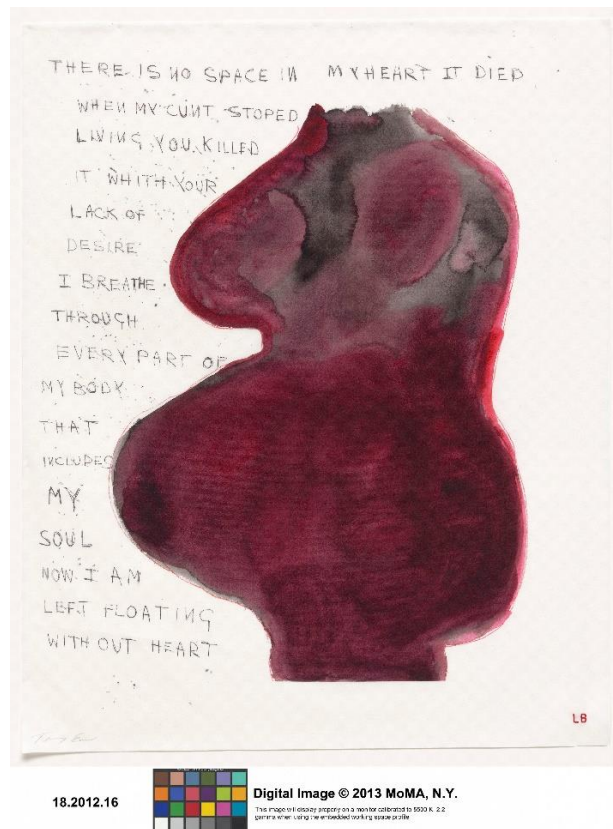 THERE IS NO SPACE IN MY HEART IT DIED
WHEN MY CUNT STOPED
LIVING YOU KILLED
IT WHITH YOUR
LACK OF
DESIRE
I BREATHE
THROUGH
EVERY PART OF
MY BODY
THAT
INCLUDES
MY
SOUL
NOW I AM
LEFT FLOATING
WITH OUT HEART
LB
18.2012.16
Digital Image © 2013 MoMA, N.Y.
This image will display properly on a monitor calibrated to 6500 K, 2.2
gamma when using the embedded working space profile